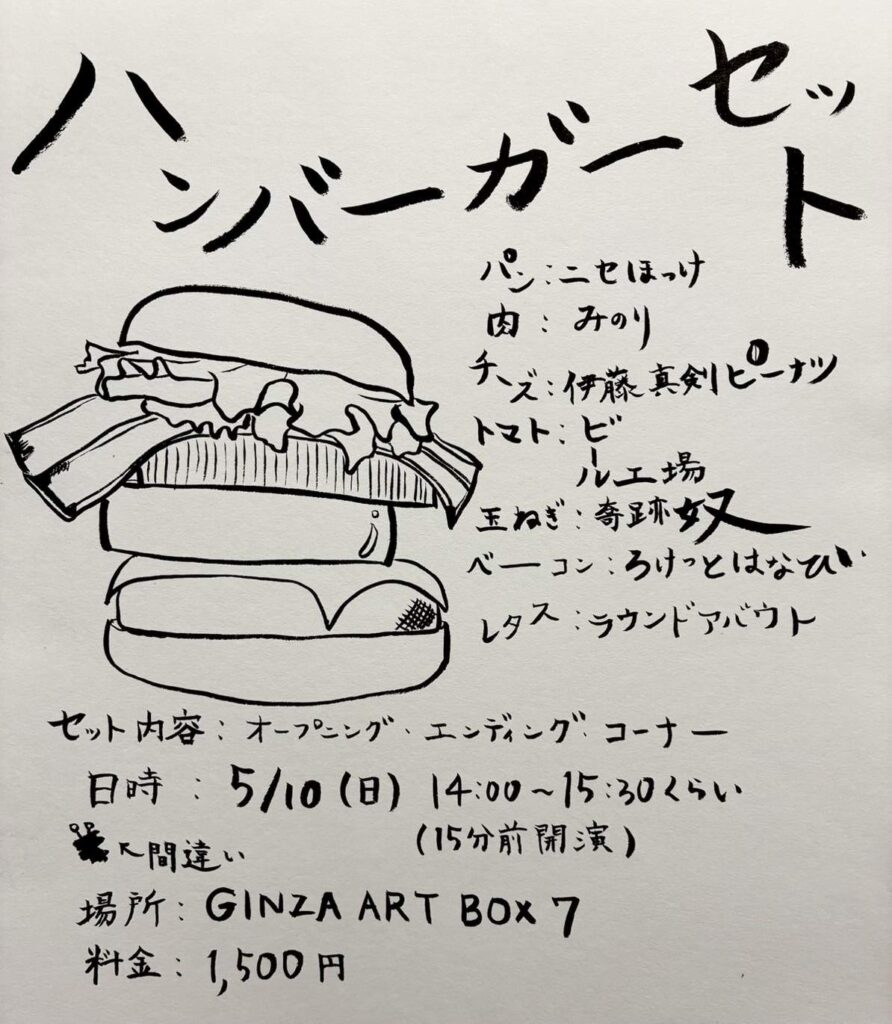 ハンバーガーセット
パン：ニセほっけ
肉：みのり
チーズ：伊藤真剣ピーナツ
トマト：ビール工場
玉ねぎ：奇跡奴
ベーコン：ろけっとはなびい
レタス：ラウンドアバウト
セット内容：オープニング・エンディング・コーナー
日時：5/10(日) 14:00～15:30くらい
(15分前開演)
↖間違い
場所：GINZA ART BOX 7
料金：1,500円